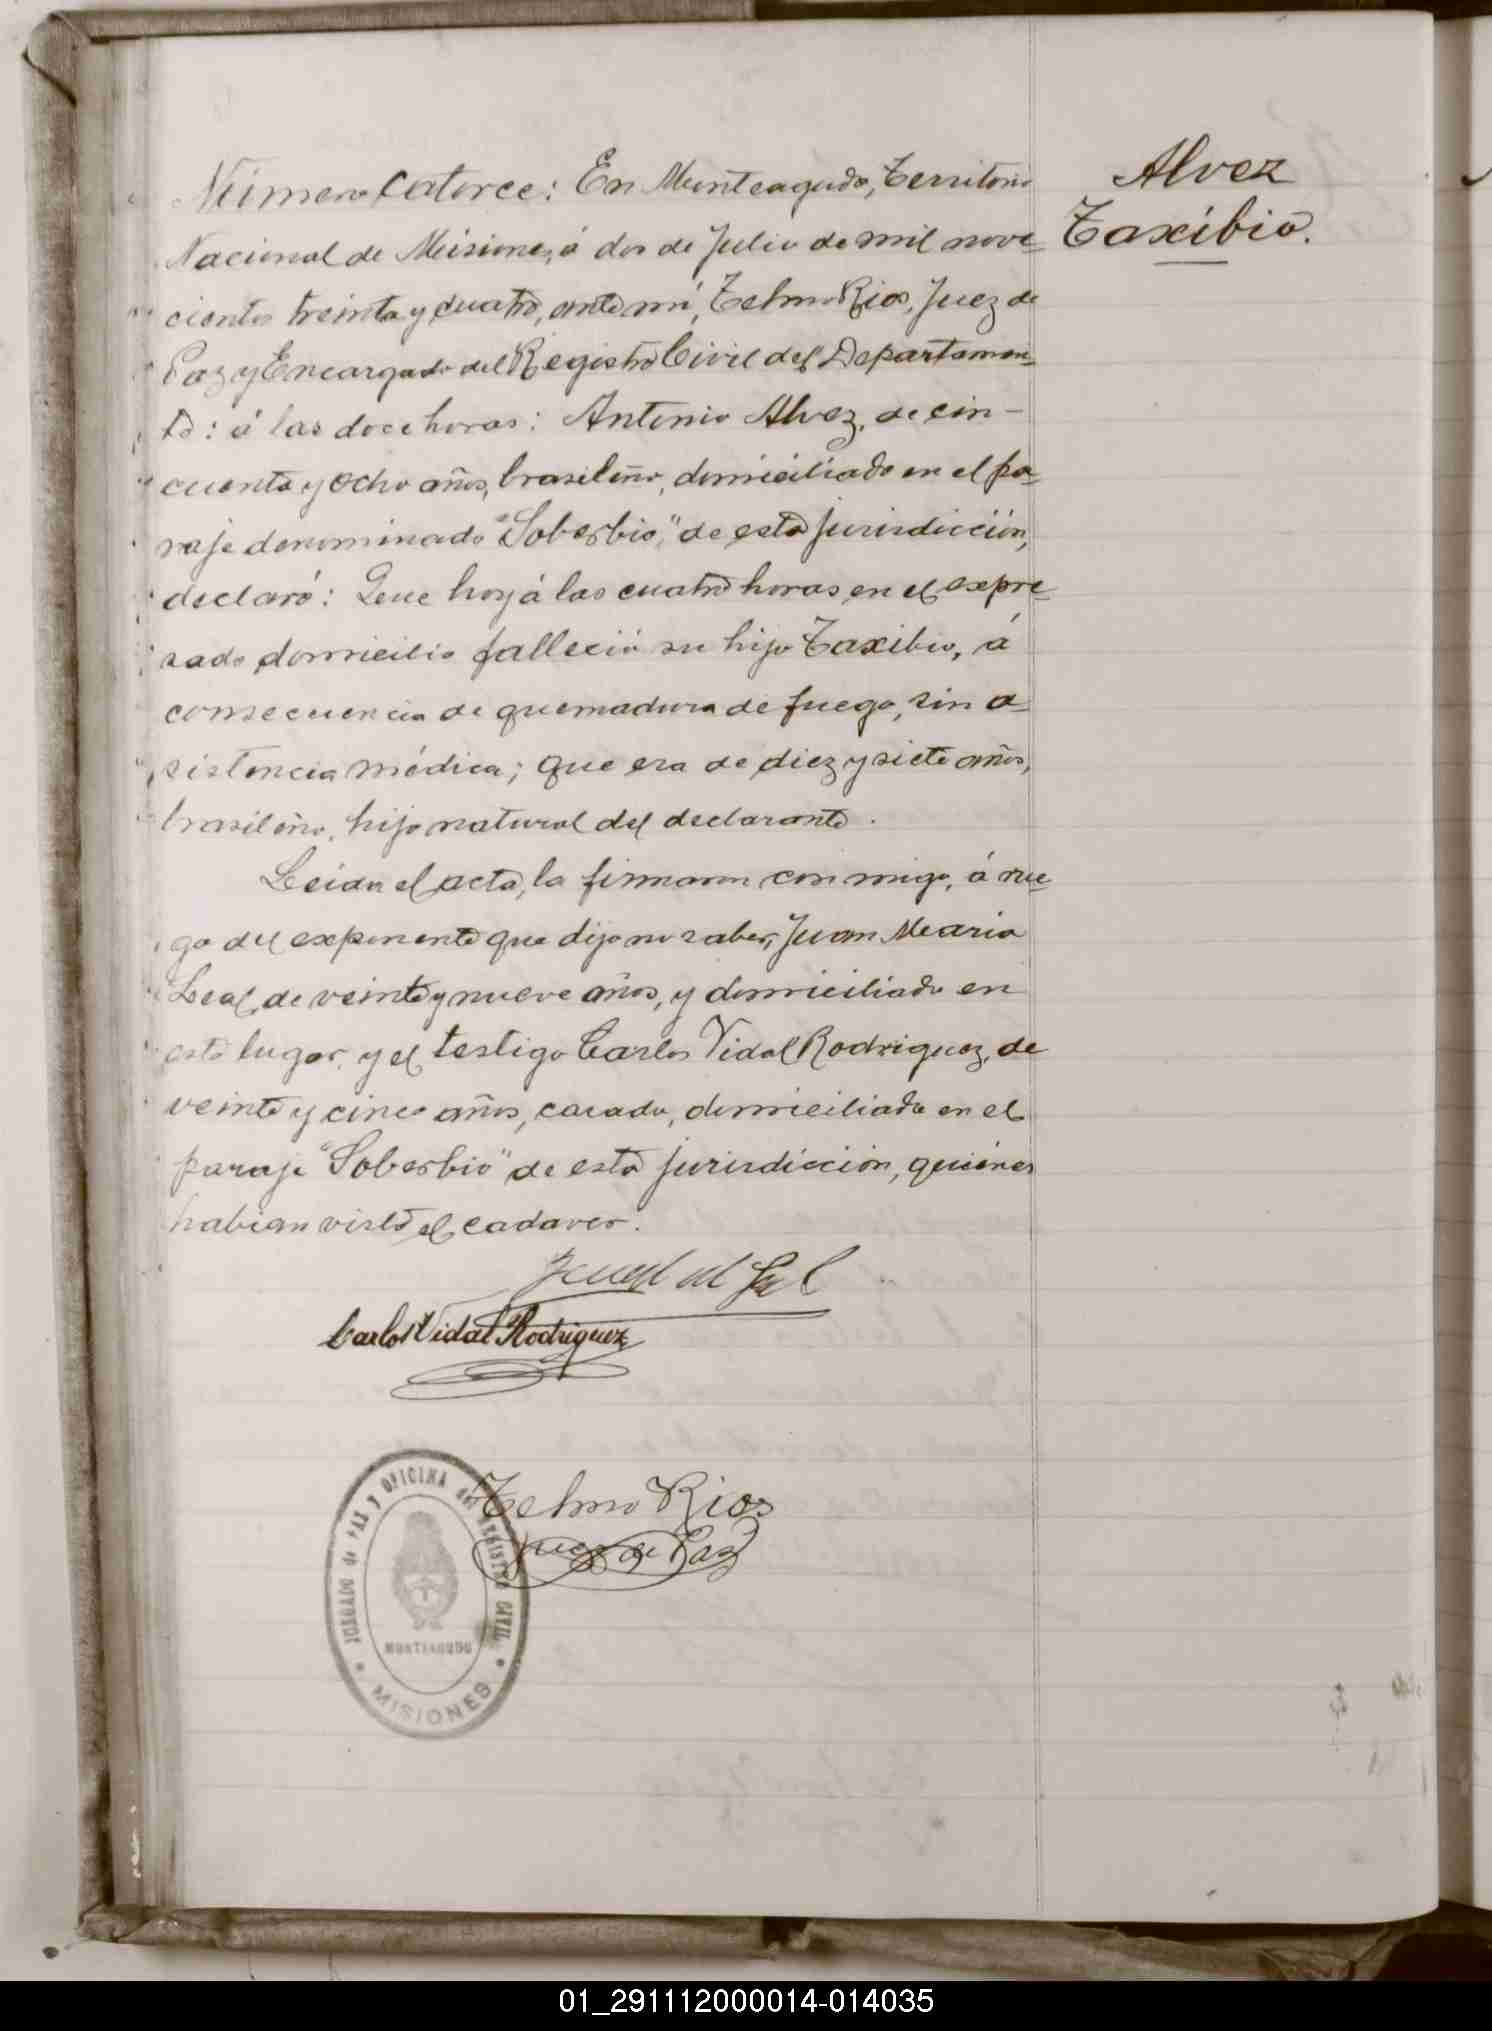 Número catorce: En Monteagudo, Territorio
Nacional de Misiones, á dos de Julio de mil nove-
cientos treinta y cuatro, ante mi, Telmo Rios, Juez de
Paz y Encargado del Registro Civil del Departamen-
to: á las doce horas: Antonio Alvez, de cin-
cuenta y ocho años, brasileño, domiciliado en el pa-
raje denominado "Soberbio," de esta jurisdicción,
declaró: Que hoy á las cuatro horas en el expre-
sado domicilio falleció su hijo Taxibio, á
consecuencia de quemadura de fuego, sin a-
sistencia médica; que era de diez y siete años,
brasileño, hijo natural del declarante.
Leida el acta, la firmaron con migo, á rue-
go del exponente que dijo no saber, Juan Maria
Leal, de veinte y nueve años, y domiciliado en
este lugar, y el testigo Carlos Vidal Rodriguez, de
veinte y cinco años, casado, domiciliado en el
paraje "Soberbio" de esta jurisdicción, quienes
habian visto el cadaver.
Carlos Vidal Rodriguez
Telmo Rios
Juez de Paz
JUZGADO de PAZ y OFICINA del REGISTRO CIVIL
MONTEAGUDO
MISIONES
Alvez
Taxibio.
01_291112000014-014035